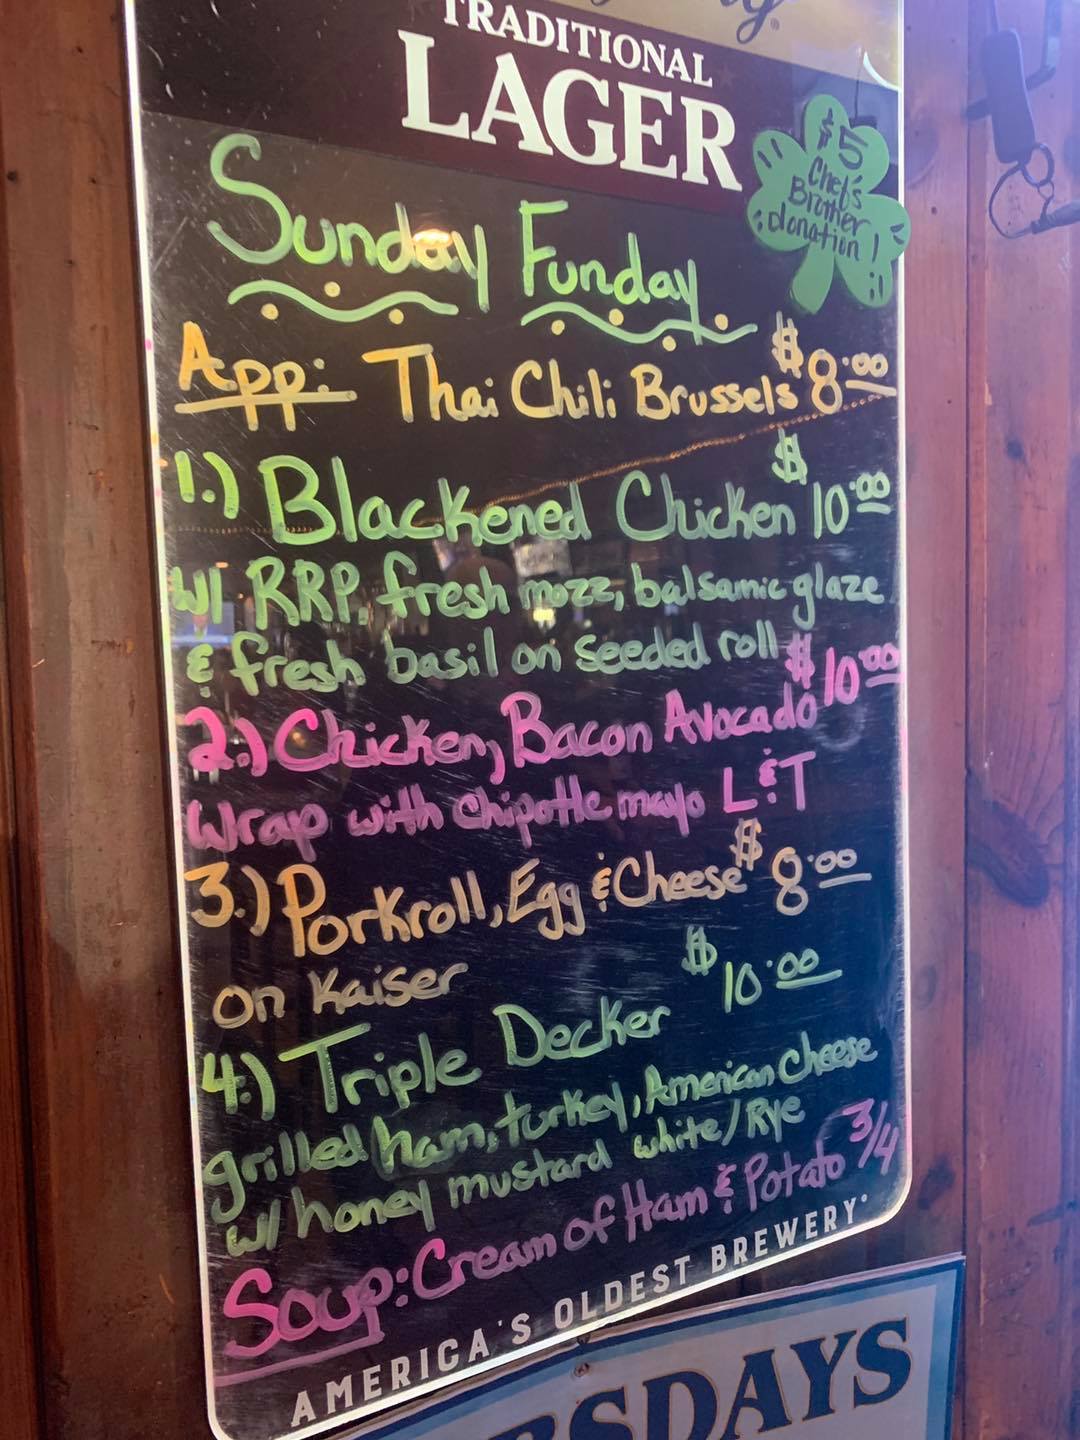 TRADITIONAL
LAGER
$5
Chef's
Brother
donation!
Sunday Funday
App: Thai Chili Brussels $8.00
1.) Blackened Chicken $10.00
w/ RRP, fresh mozz, balsamic glaze
& fresh basil on seeded roll
2.) Chicken, Bacon Avocado $10.00
Wrap with chipotle mayo L & T
3.) Porkroll, Egg & Cheese $8.00
on Kaiser
4.) Triple Decker $10.00
grilled ham, turkey, American Cheese
w/ honey mustard white/Rye
Soup: Cream of Ham & Potato 3/4
AMERICA'S OLDEST BREWERY®
SDAYS